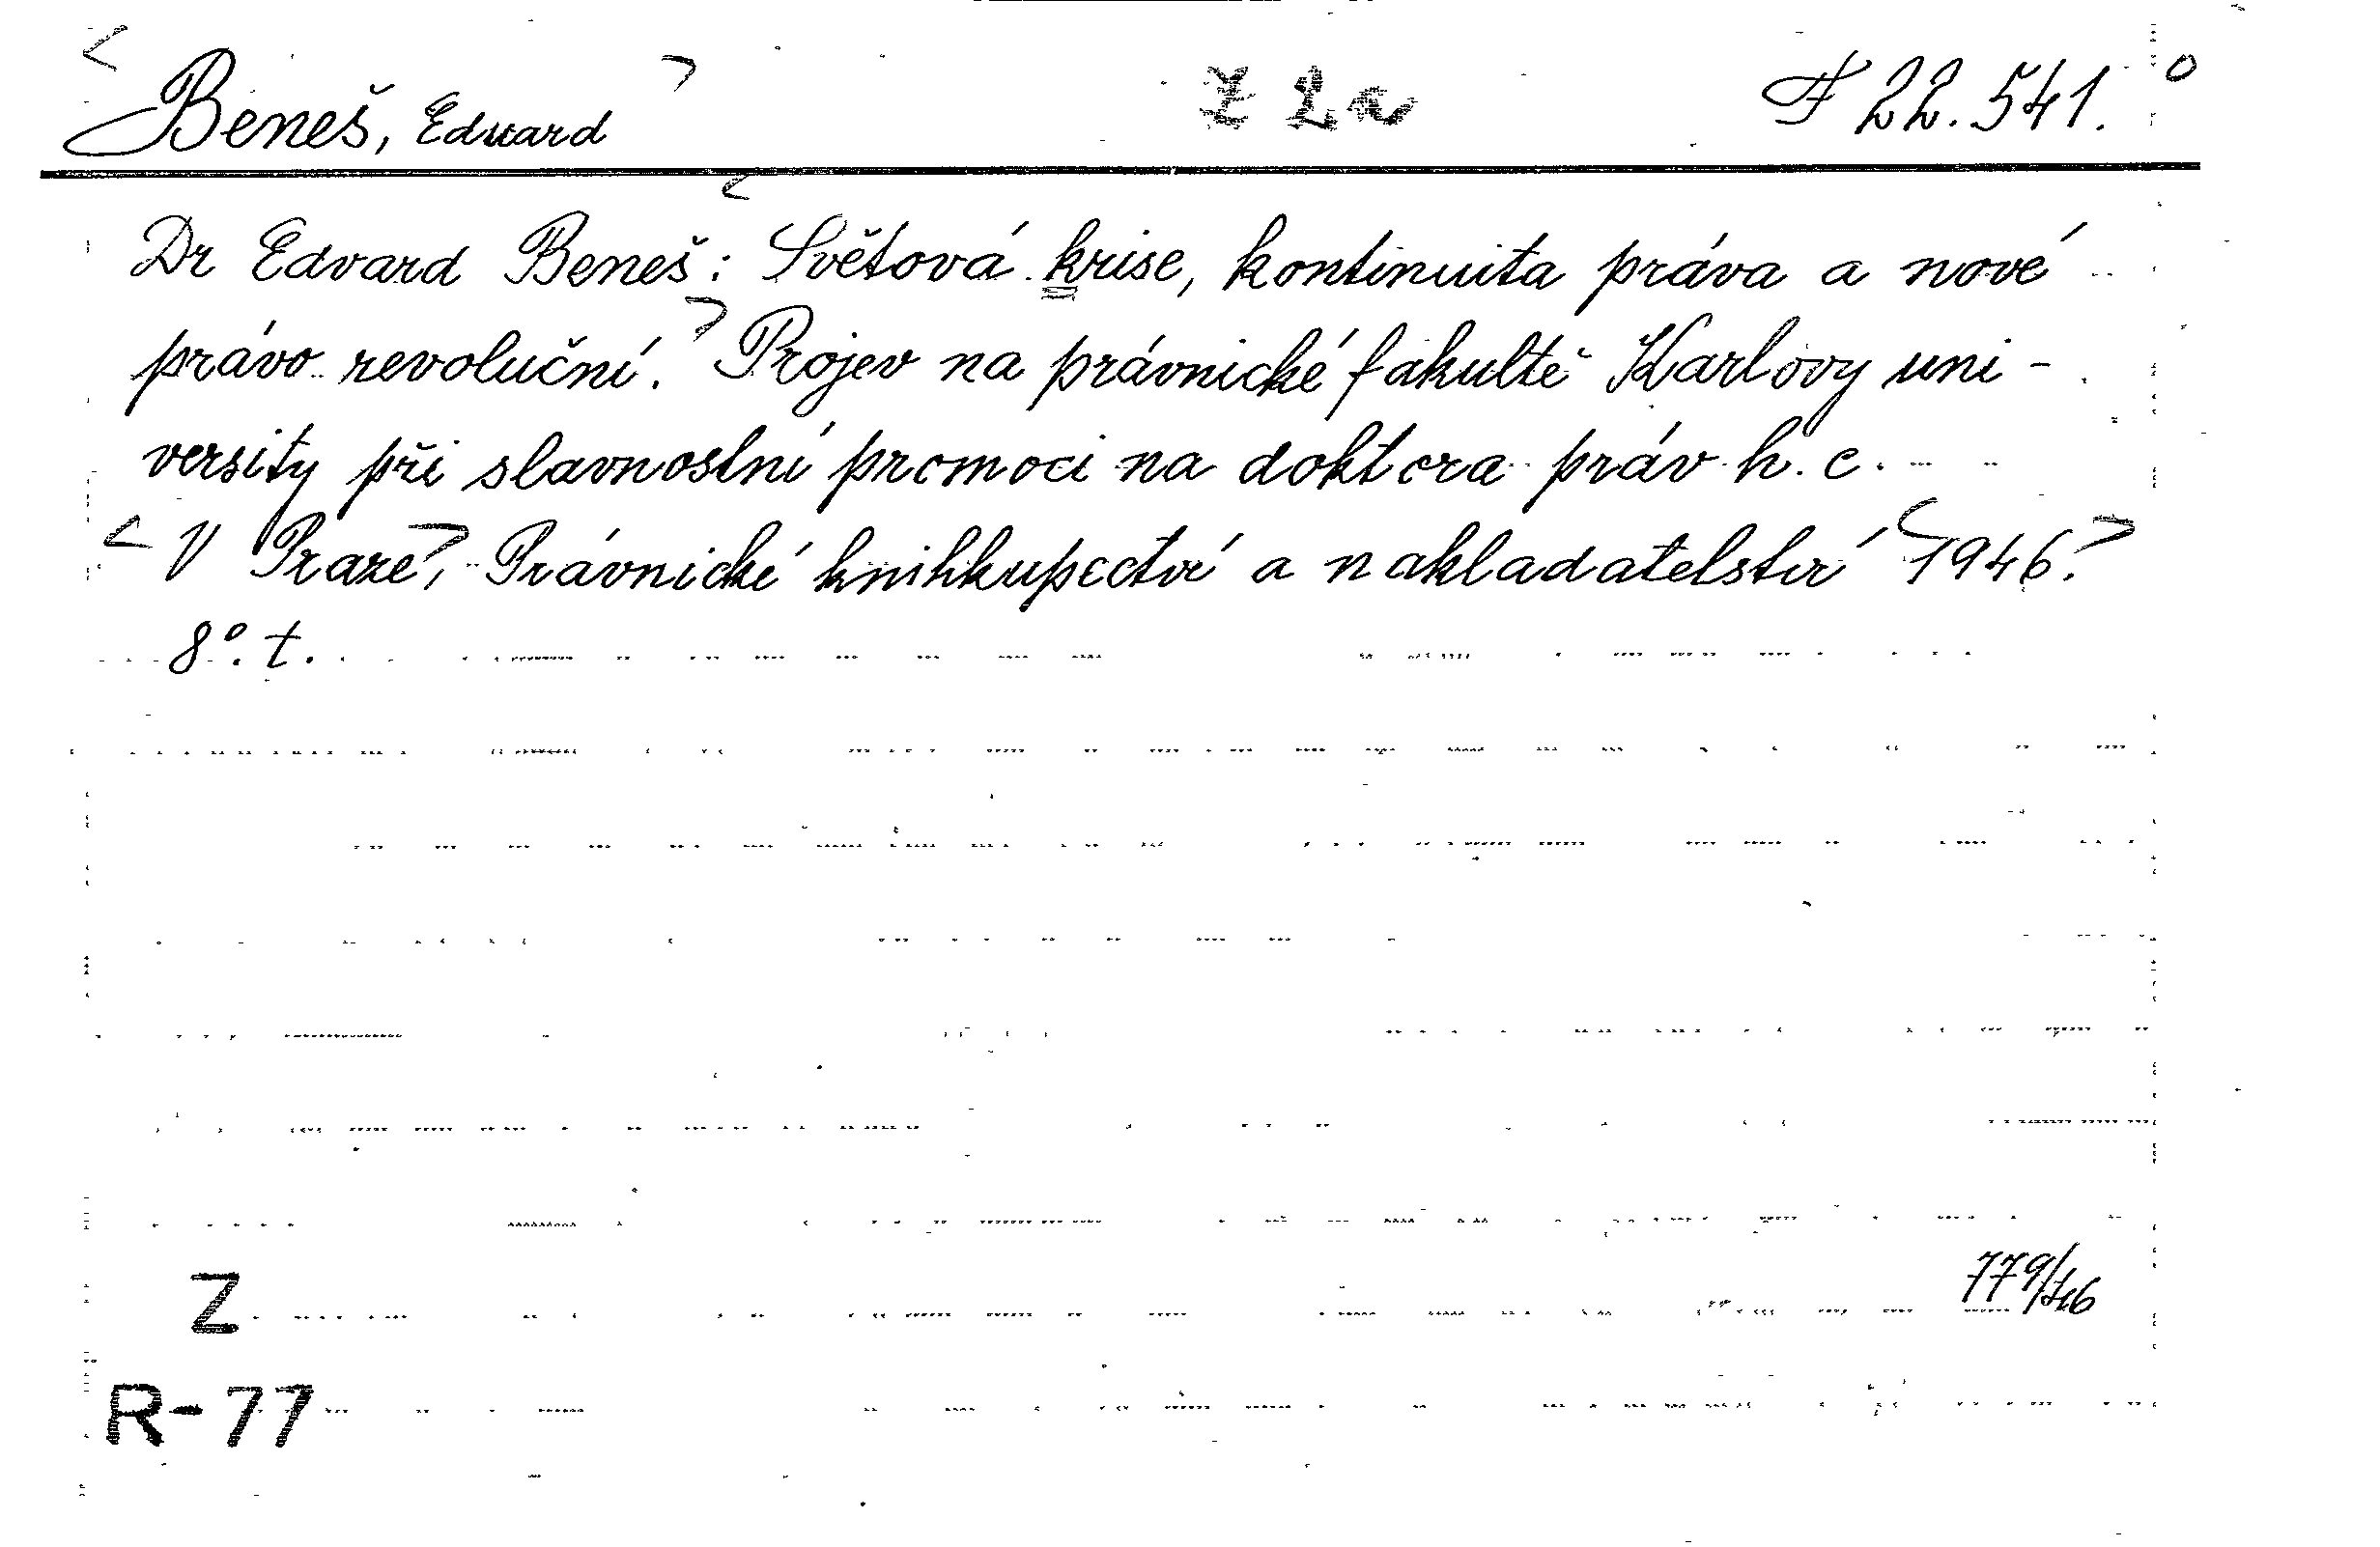 < Beneš, Eduard > Z 2a F 22.541. o
Dr Edvard Beneš: < Světová krise, kontinuita práva a nové
právo revoluční. > Projev na právnické fakultě Karlovy uni-
versity při slavnostní promoci na doktora práv h. c.
< V Praze >, Právnické knihkupectví a nakladatelství < 1946. >
8°. t.
Z 779/46
R-77